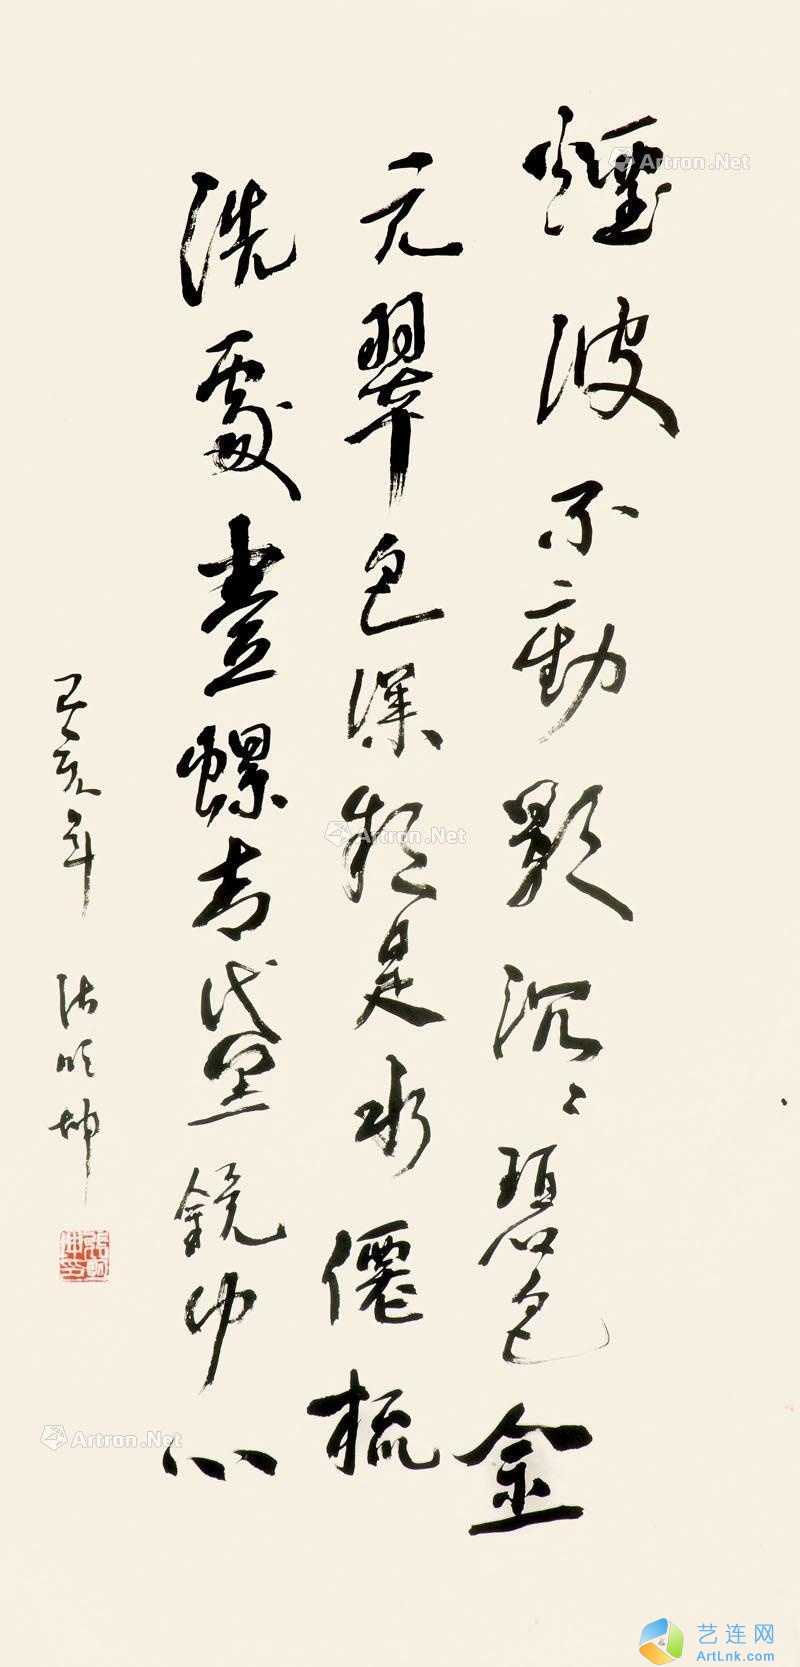 煙波不動影沉沉碧色全
无翠色深疑是水僊梳
洗處壹螺青黛鏡中心
己亥年 張 坤
Artron.Net
Artron.Net
Artron.Net
艺连网
ArtLnk.com